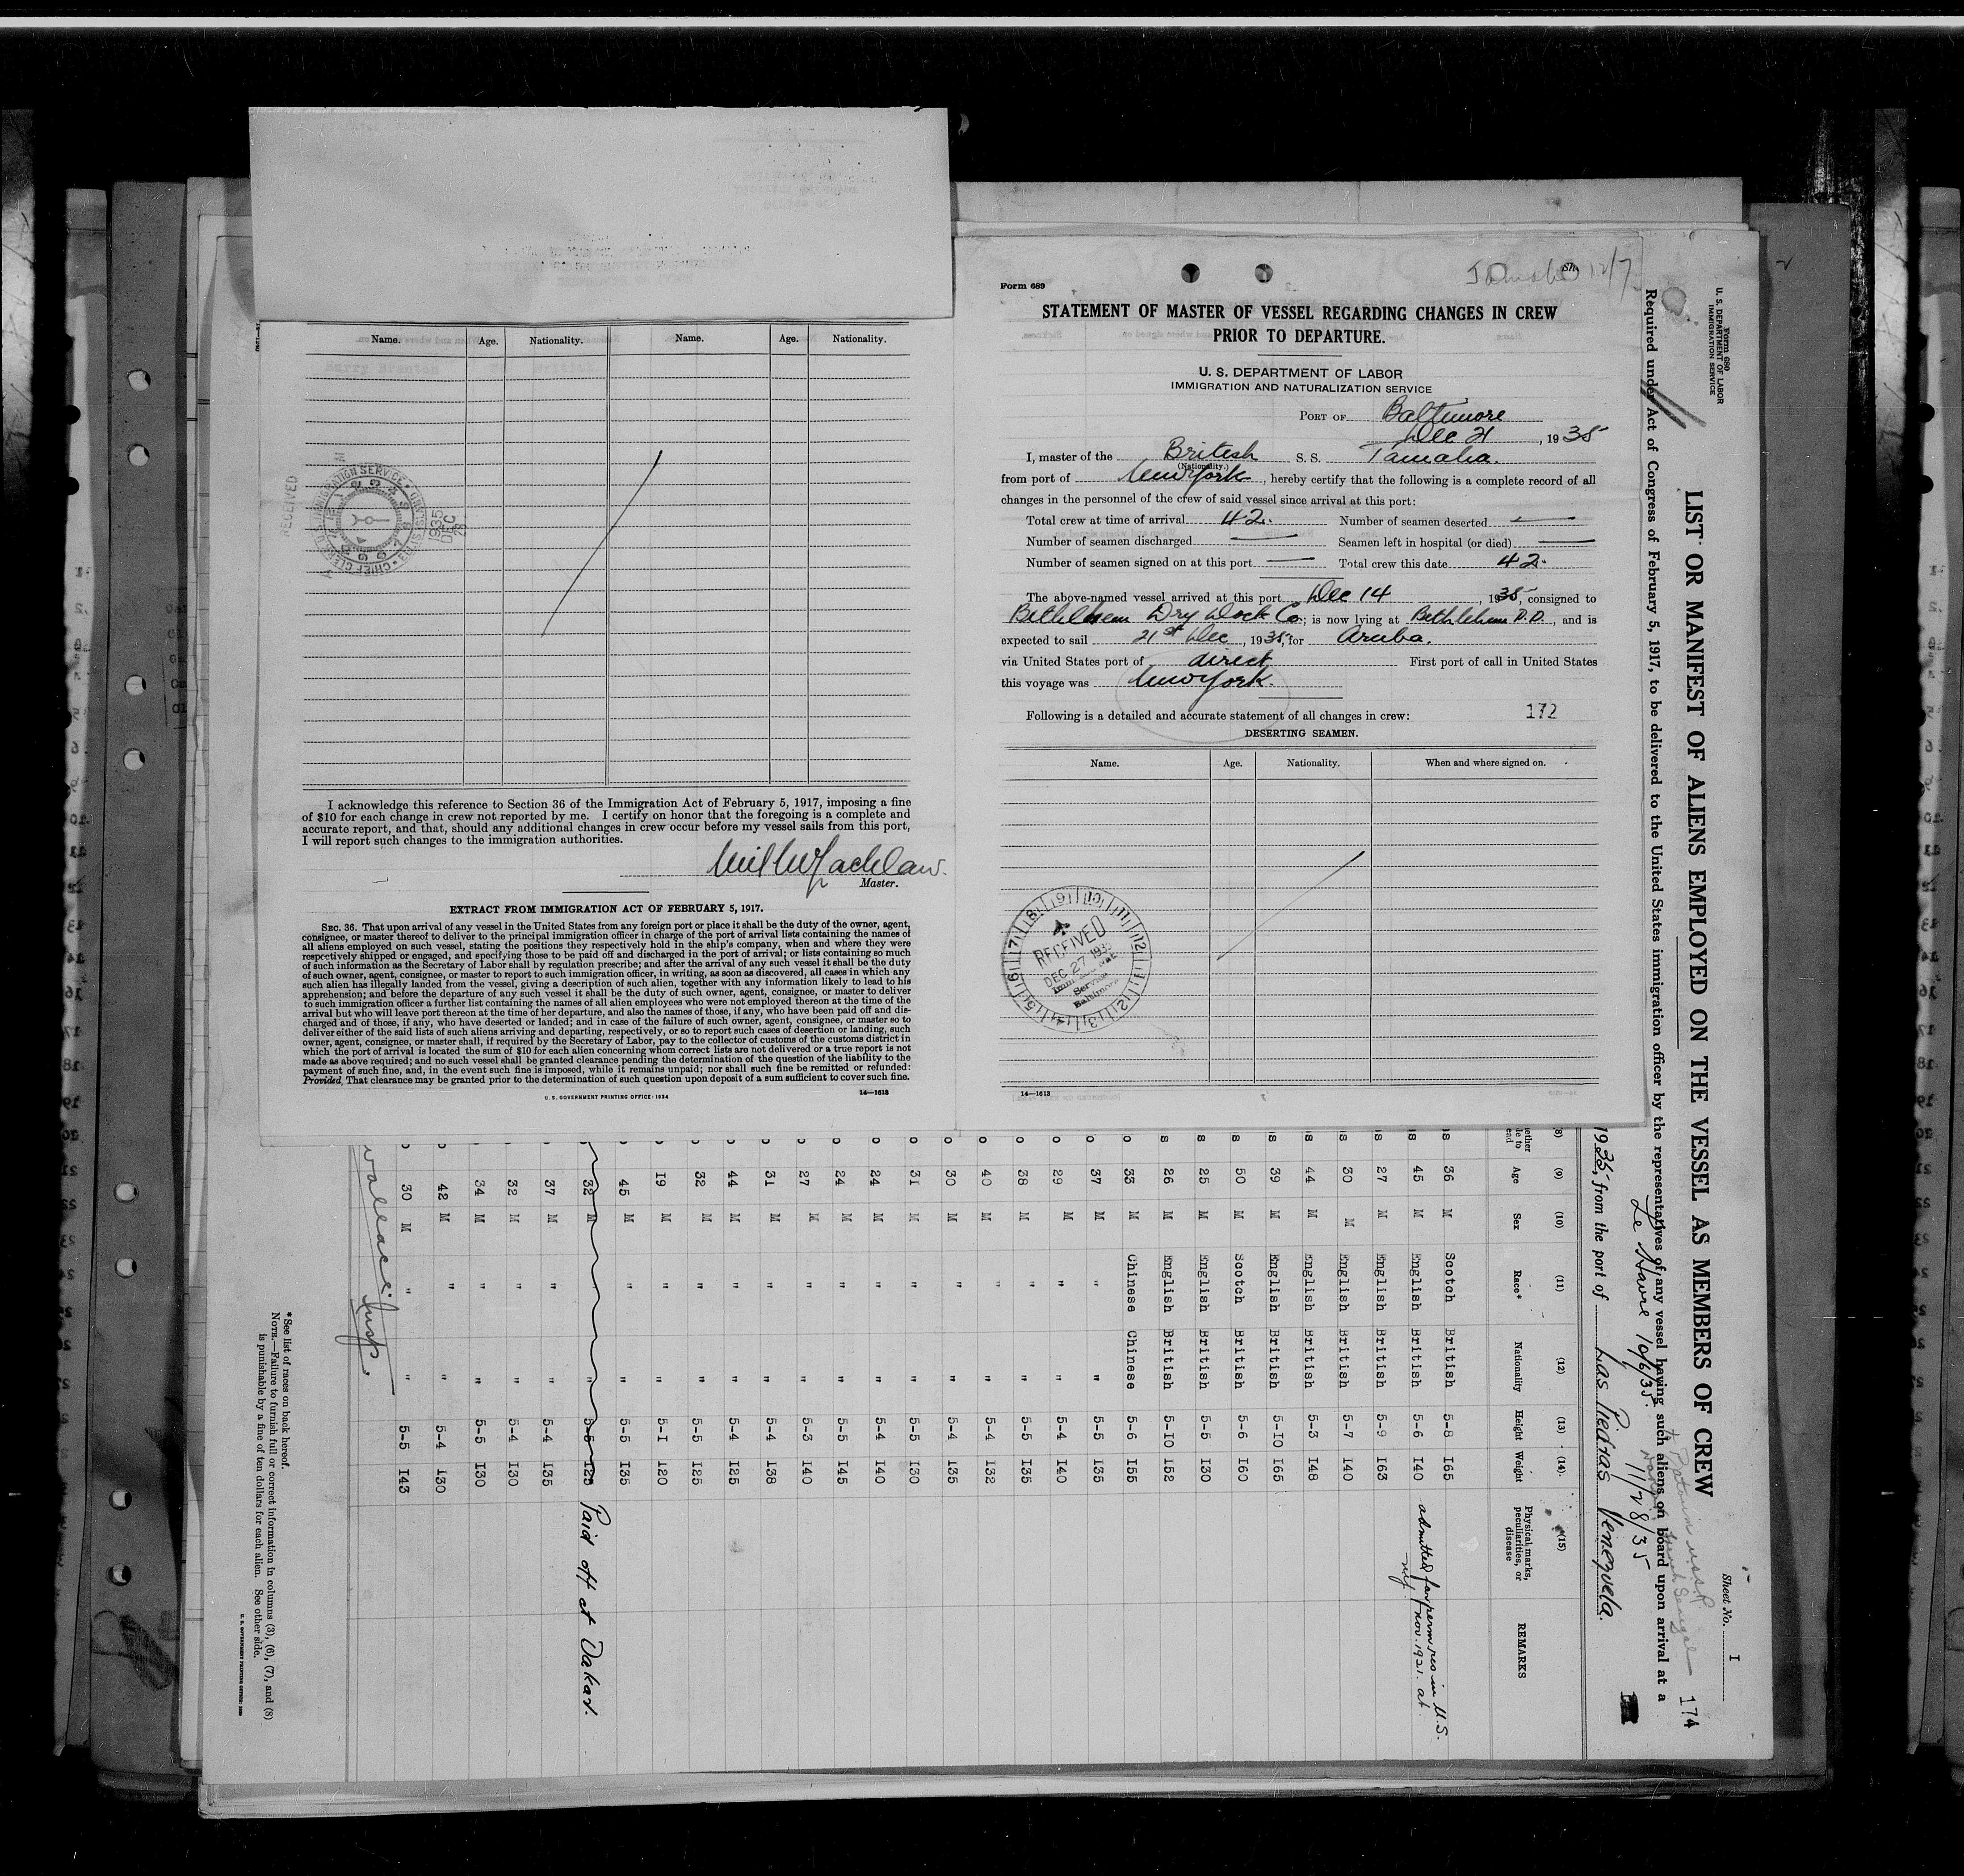 Form 689
STATEMENT OF MASTER OF VESSEL REGARDING CHANGES IN CREW
PRIOR TO DEPARTURE.
U. S. DEPARTMENT OF LABOR
IMMIGRATION AND NATURALIZATION SERVICE
PORT OF Baltimore
Dec 21, 1935
I, master of the British S. S. Tamaha.
(Nationality.)
from port of New York, hereby certify that the following is a complete record of all
changes in the personnel of the crew of said vessel since arrival at this port:
Total crew at time of arrival 42. Number of seamen deserted —
Number of seamen discharged — Seamen left in hospital (or died) —
Number of seamen signed on at this port — Total crew this date 42.
The above-named vessel arrived at this port Dec 14, 1935, consigned to
Bethlehem Dry Dock Co; is now lying at Bethlehem D.D., and is
expected to sail 21st Dec, 1935, for Aruba.
via United States port of direct First port of call in United States
this voyage was New York.
Following is a detailed and accurate statement of all changes in crew: 172
DESERTING SEAMEN.
Name. Age. Nationality. When and where signed on.
RECEIVED
DEC 27 1935
Service
Baltimore
14—1613
Name. Age. Nationality. Name. Age. Nationality.
RECEIVED
1935
DEC
I acknowledge this reference to Section 36 of the Immigration Act of February 5, 1917, imposing a fine
of $10 for each change in crew not reported by me. I certify on honor that the foregoing is a complete and
accurate report, and that, should any additional changes in crew occur before my vessel sails from this port,
I will report such changes to the immigration authorities.
Master.
EXTRACT FROM IMMIGRATION ACT OF FEBRUARY 5, 1917.
SEC. 36. That upon arrival of any vessel in the United States from any foreign port or place it shall be the duty of the owner, agent,
consignee, or master thereof to deliver to the principal immigration officer in charge of the port of arrival lists containing the names of
all aliens employed on such vessel, stating the positions they respectively hold in the ship's company, when and where they were
respectively shipped or engaged, and specifying those to be paid off and discharged in the port of arrival; or lists containing so much
of such information as the Secretary of Labor shall by regulation prescribe; and after the arrival of any such vessel it shall be the duty
of such owner, agent, consignee, or master to report to such immigration officer, in writing, as soon as discovered, all cases in which any
such alien has illegally landed from the vessel, giving a description of such alien, together with any information likely to lead to his
apprehension; and before the departure of any such vessel it shall be the duty of such owner, agent, consignee, or master to deliver
to such immigration officer a further list containing the names of all alien employees who were not employed thereon at the time of the
arrival but who will leave port thereon at the time of her departure, and also the names of those, if any, who have been paid off and dis-
charged and of those, if any, who have deserted or landed; and in case of the failure of such owner, agent, consignee, or master so to
deliver either of the said lists of such aliens arriving and departing, respectively, or so to report such cases of desertion or landing, such
owner, agent, consignee, or master shall, if required by the Secretary of Labor, pay to the collector of customs of the customs district in
which the port of arrival is located the sum of $10 for each alien concerning whom correct lists are not delivered or a true report is not
made as above required; and no such vessel shall be granted clearance pending the determination of the question of the liability to the
payment of such fine, and, in the event such fine is imposed, while it remains unpaid; nor shall such fine be remitted or refunded:
Provided, That clearance may be granted prior to the determination of such question upon deposit of a sum sufficient to cover such fine.
U. S. GOVERNMENT PRINTING OFFICE: 1934 14—1613
Form 689
U. S. DEPARTMENT OF LABOR
IMMIGRATION SERVICE
Sheet No. I
174
LIST OR MANIFEST OF ALIENS EMPLOYED ON THE VESSEL AS MEMBERS OF CREW
Required under Act of Congress of February 5, 1917, to be delivered to the United States immigration officer by the representatives of any vessel having such aliens on board upon arrival at a
Le Havre 10/6/35. 11/28/35
1935, from the port of Las Piedras Venezuela.
(8) (9) (10) (11) (12) (13) (14) (15)
Age Sex Race* Nationality Height Weight Physical marks, peculiarities, or disease REMARKS
36 M Scotch British 5-8 165
45 M English British 5-6 140 admitted for perm res in U.S. Nov. 1921. at NY
27 M English British 5-9 163
30 M English British 5-7 140
44 M English British 5-3 148
39 M English British 5-10 165
50 M Scotch British 5-6 160
25 M English British 5-5 130
26 M English British 5-10 152
33 M Chinese Chinese 5-6 155
37 M " " 5-5 135
29 M " " 5-4 140
38 M " " 5-5 135
40 M " " 5-4 132
30 M " " 5-4 135
31 M " " 5-5 130
24 M " " 5-4 140
24 M " " 5-5 145
27 M " " 5-3 140
31 M " " 5-4 138
44 M " " 5-4 125
32 M " " 5-5 125
19 M " " 5-1 120
45 M " " 5-5 135
32 M " 5-5 120 Paid off at Dakar.
37 M " " 5-4 135
32 M " " 5-4 130
34 M " " 5-5 130
42 M " " 5-4 130
30 M " " 5-5 143
Wallace Insp.
*See list of races on back hereof.
NOTE.—Failure to furnish full or correct information in columns (3), (6), (7), and (8)
is punishable by a fine of ten dollars for each alien. See other side.